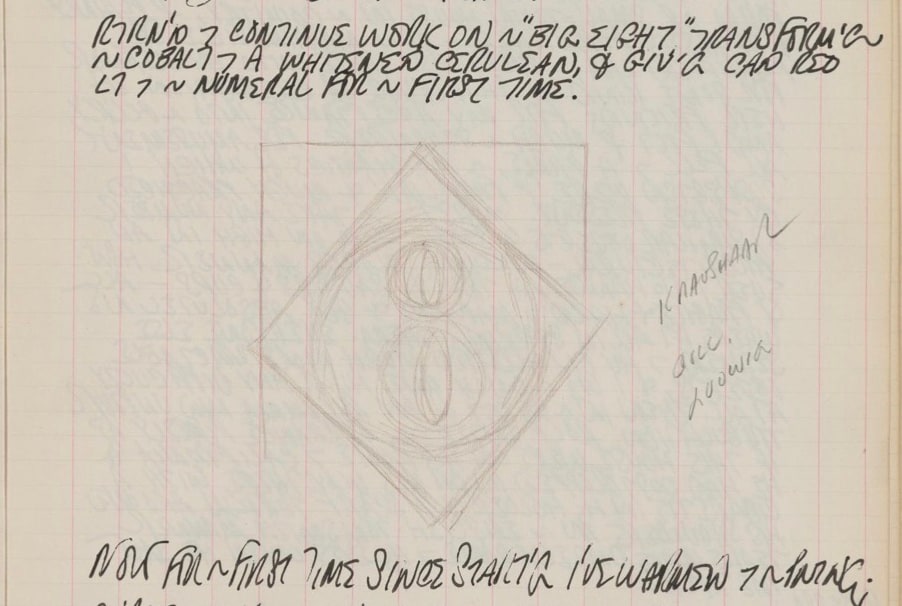 RTRN'D 7 CONTINUE WORK ON ~ "BIG EIGHT" TRANSFORM'G
~ COBALT 7 A WHITENED CERULEAN, & GIV'G CAD RED
LT 7 ~ NUMERAL FOR ~ FIRST TIME.
KRAUSHAAR
LUDWIG
NOW FOR ~ FIRST TIME SINCE START'G I'VE WARMED 7 ~ PNTNG;